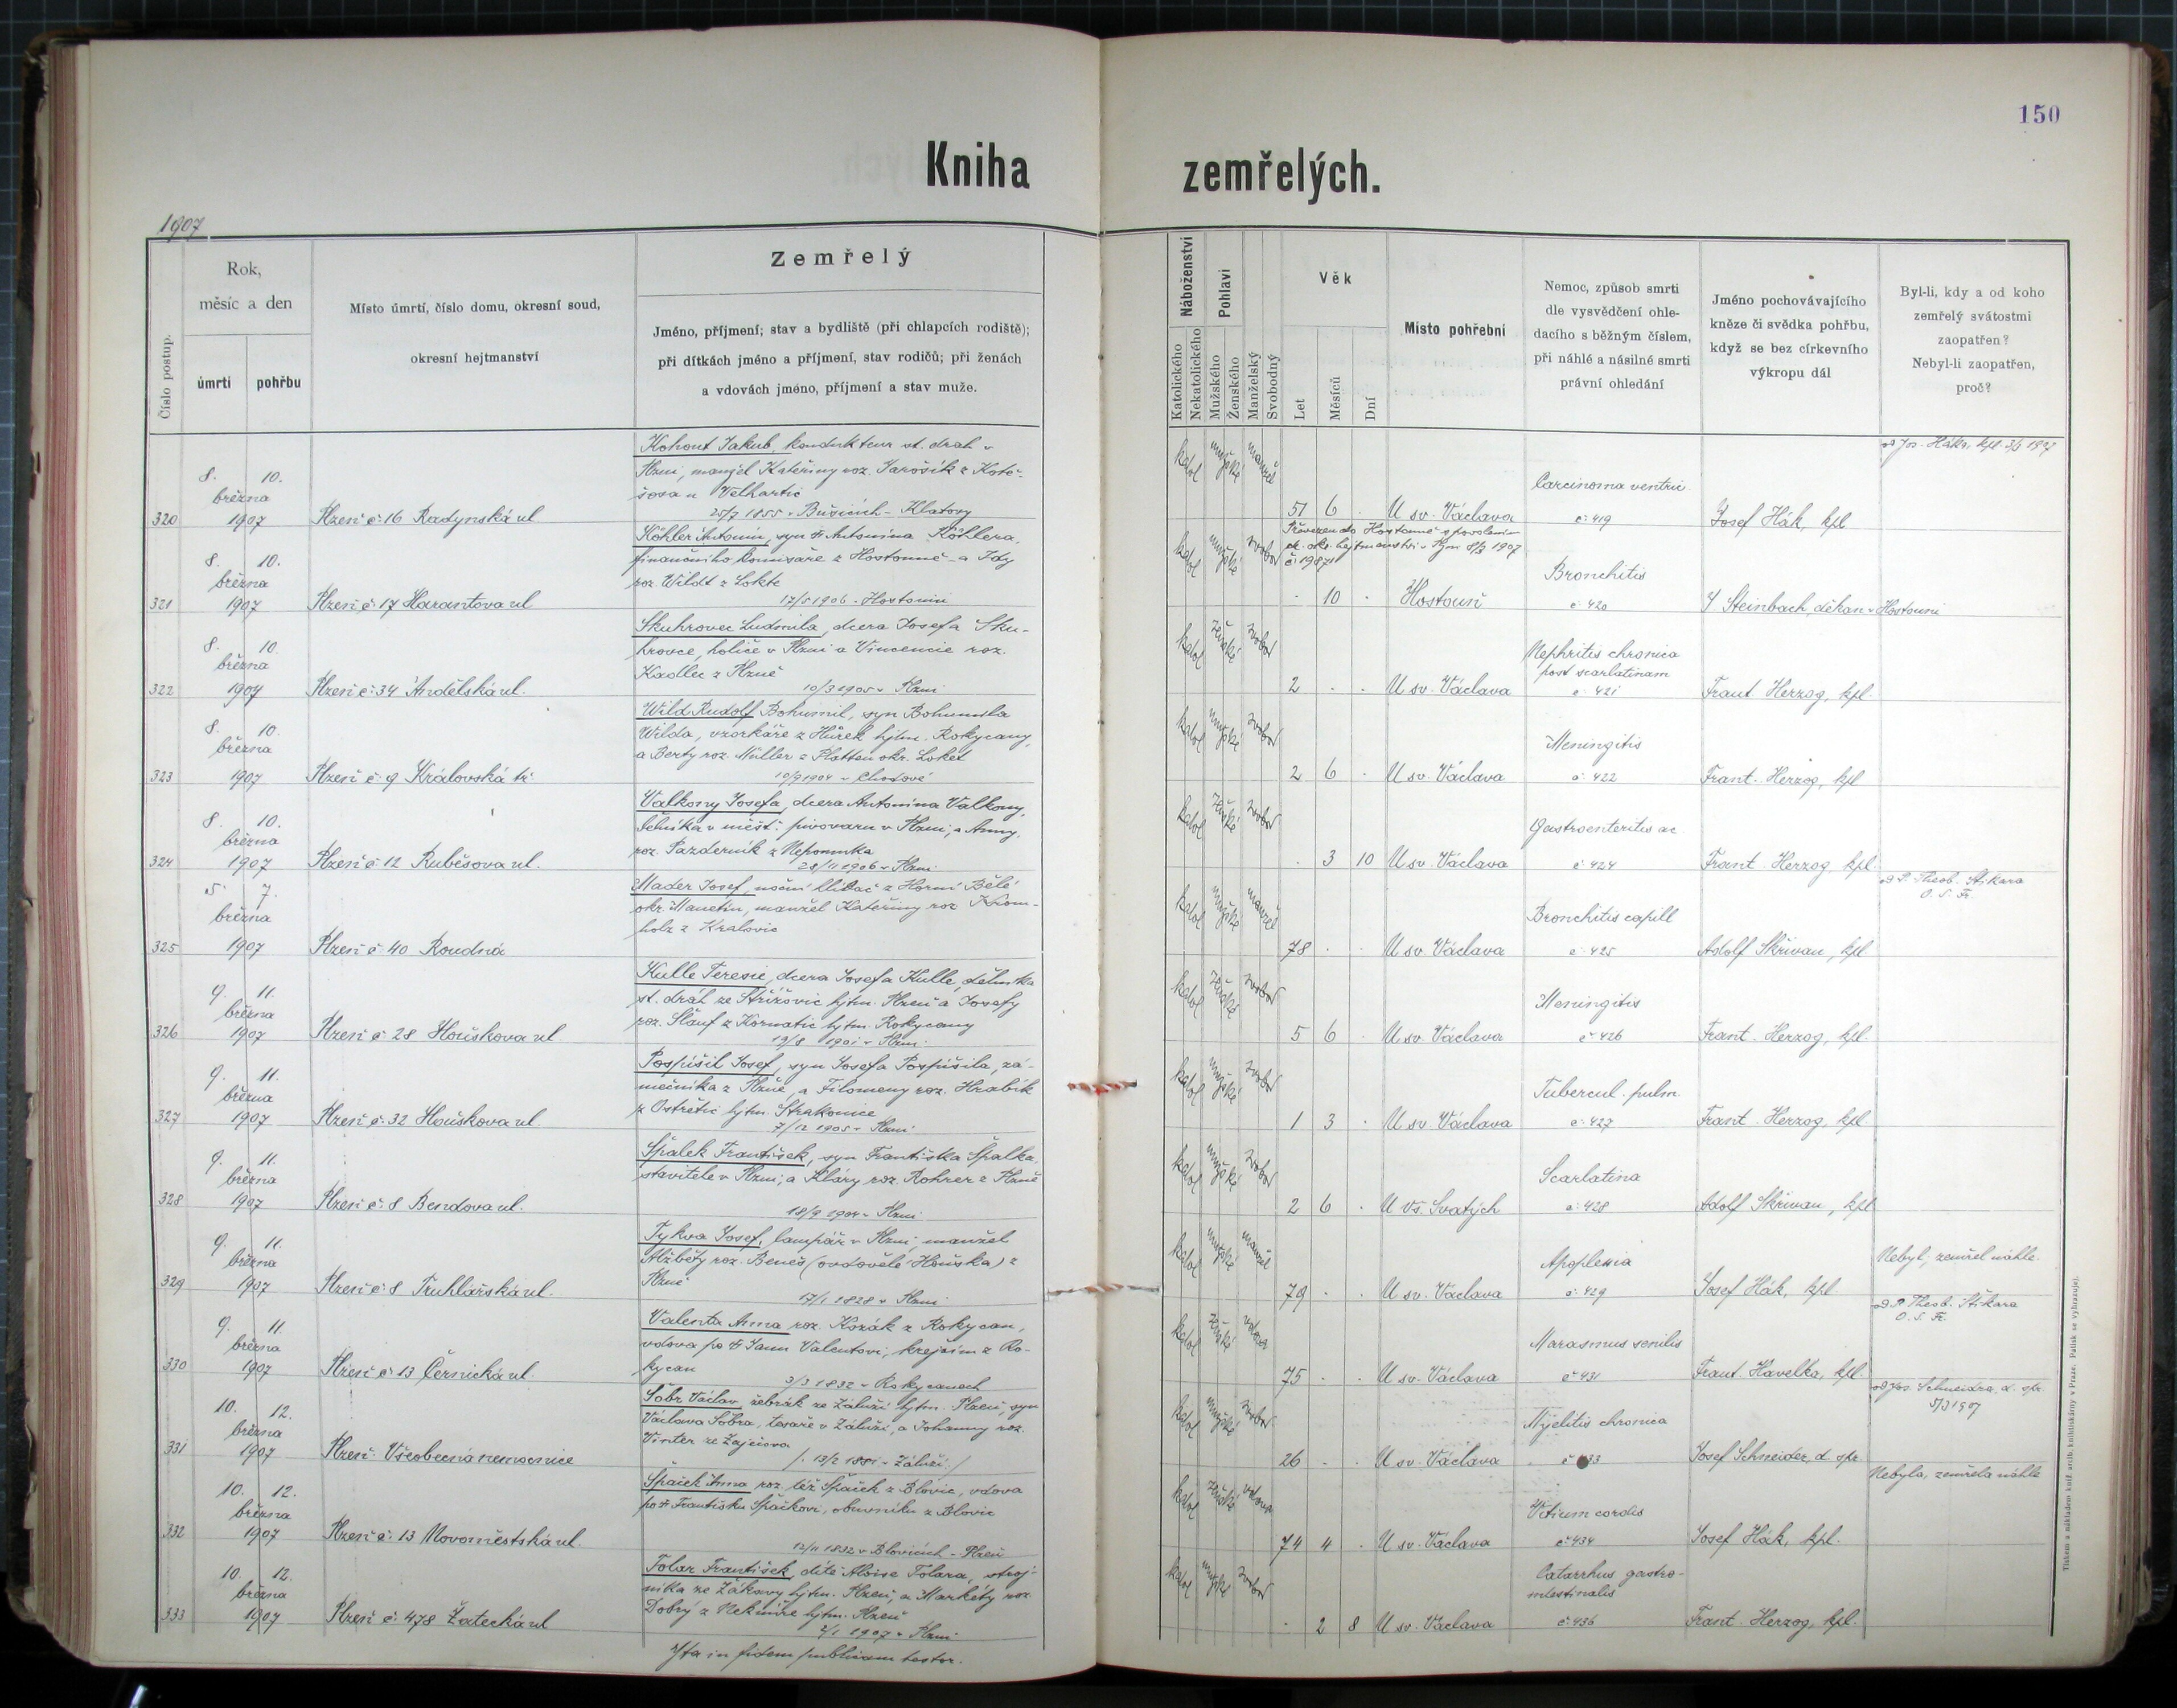 150
Kniha zemřelých.
1907
Číslo postup.
Rok,
měsíc a den
úmrtí
pohřbu
Místo úmrtí, číslo domu, okresní soud,
okresní hejtmanství
Zemřelý
Jméno, příjmení; stav a bydliště (při chlapcích rodiště);
při dítkách jméno a příjmení, stav rodičů; při ženách
a vdovách jméno, příjmení a stav muže.
Náboženství
Katolického
Nekatolického
Pohlaví
Mužského
Ženského
Manželský
Svobodný
Věk
Let
Měsíců
Dní
Místo pohřební
Nemoc, způsob smrti
dle vysvědčení ohle-
dacího s běžným číslem,
při náhlé a násilné smrti
právní ohledání
Jméno pochovávajícího
kněze či svědka pohřbu,
když se bez církevního
výkropu dál
Byl-li, kdy a od koho
zemřelý svátostmi
zaopatřen?
Nebyl-li zaopatřen,
proč?
320
8. 10.
března
1907
Plzeň č: 16 Radynská ul
Kohout Jakub, kondukteur st. drah v
Plzni, manžel Kateřiny roz. Jarošík z
u Velhartic
25/7 1855 v Bušicích - Klatovy
katol mužské manžel
51 6 U sv. Václava
Carcinoma ventric.
č: 419
Josef Hák, kpl
od Jos. Háka, kpl. 3/3 1907
321
8. 10.
března
1907
Plzeň č: 17 Harantova ul
Köhler Antonín, syn † Antonína Köhlera,
finančního komisaře z Hostouně a Idy
roz. Wildt z Lokte
17/5 1906 v Hostouni
katol mužské svobod
Převezen do Hostouně s povolením
ck. okr. hejtmanství v Plzni 8/3 1907
č: 19871
. 10 . Hostouň
Bronchitis
č: 420
Steinbach, děkan v Hostouni
322
8. 10.
března
1907
Plzeň č: 34 Andělská ul.
Skuhrovec Ludmila, dcera Josefa Sku-
hrovce, holiče v Plzni a Vincencie roz.
Kadlec z Plzně
10/3 1905 v Plzni
katol ženské svobod
2 . . U sv. Václava
Nephritis chronica
post scarlatinam
č: 421
Frant Herzog, kpl.
323
8. 10.
března
1907
Plzeň č: 9 Královská tř
Wild Rudolf Bohumil, syn Bohumila
Wilda, vzorkáře z Hůrek hjtm. Rokycany,
a Berty roz. Müller z Platten okr. Loket
10/9 1904 v Chodové
katol mužské svobod
2 6 . U sv. Václava
Meningitis
č: 422
Frant. Herzog, kpl
324
8. 10.
března
1907
Plzeň č: 12 Rubešova ul.
Valkony Josefa, dcera Antonína Valkony,
dělníka v měšť: pivovaru v Plzni, a Anny,
roz. Pazderník z Nepomuka
28/11 1906 v Plzni
katol ženské svobod
. 3 10 U sv. Václava
Gastroenteritis ac
č: 424
Frant. Herzog, kpl.
325
5. 7.
března
1907
Plzeň č: 40 Roudná
Mader Josef, noční hlídač z Horní Bělé
okr. Manetín, manžel Kateřiny roz Krom-
holz z Kralovic
katol mužské manžel
78 . . U sv. Václava
Bronchitis capill
č: 425
Adolf Skřivan, kpl.
od P. Theob. Štikara
O. S. Fr.
326
9. 11.
března
1907
Plzeň č: 28 Houškova ul
Kulle Teresie, dcera Josefa Kulle, dělníka
st. drah ze Střížovic hjtm. Plzeň a Josefy
roz. Šlauf z Kornatic hjtm. Rokycany
19/8 1901 v Plzni
katol ženské svobod
5 6 . U sv. Václava
Meningitis
č: 426
Frant. Herzog, kpl.
327
9. 11.
března
1907
Plzeň č: 32 Houškova ul.
Pospíšil Josef, syn Josefa Pospíšila, zá-
mečníka z Plzně, a Filomeny roz. Hrabík
z Ostřetic hjtm. Strakonice
7/12 1905 v Plzni
katol mužské svobod
1 3 . U sv. Václava
Tubercul. pulm.
č: 427
Frant. Herzog, kpl.
328
9. 11.
března
1907
Plzeň č: 8 Bendova ul.
Špalek František, syn Františka Špalka,
stavitele v Plzni, a Kláry roz. Rohrer z Plzně
18/9 1904 v Plzni
katol mužské svobod
2 6 . U Vš. Svatých
Scarlatina
č: 428
Adolf Skřivan, kpl
329
9. 11.
března
1907
Plzeň č: 8 Truhlářská ul.
Tykva Josef, lampář v Plzni, manžel
Alžběty roz. Beneš (ovdovělé Houška) z
Plzně
17/1 1828 v Plzni
katol mužské manžel
79 . . U sv. Václava
Apoplexia
č: 429
Josef Hák, kpl
Nebyl; zemřel náhle.
330
9. 11.
března
1907
Plzeň č: 13 Černická ul.
Valenta Anna roz. Kozák z Rokycan,
vdova po † Janu Valentovi, krejčím z Ro-
kycan
3/3 1832 v Rokycanech
katol ženské vdova
75 . . U sv. Václava
Marasmus senilis
č: 431
Frant. Havelka, kpl
od P. Theob. Štikara
O. S. Fr.
331
10. 12.
března
1907
Plzeň: Všeobecná nemocnice
Šobr Václav, žebrák ze Záluží hjtm. Plzeň, syn
Václava Šobra, tesaře v Záluží, a Johanny roz.
Vinter ze Zaječova
/. 13/2 1881 v Záluží ./
katol mužské svobod
26 . . U sv. Václava
Myelitis chronica
č 433
Josef Schneider, d. spr.
od Jos. Schneidra, d. spr.
5/3 1907
332
10. 12.
března
1907
Plzeň č: 13 Novoměstská ul.
Špaček Anna, roz. též Špaček z Blovic, vdova
po † Františku Špačkovi, obuvníku z Blovic
12/11 1832 v Blovicích - Plzeň
katol ženské vdova
74 4 . U sv. Václava
Vitium cordis
č: 434
Josef Hák, kpl.
Nebyla, zemřela náhle
333
10. 12.
března
1907
Plzeň č: 478 Žatecká ul
Tolar František, dítě Aloise Tolara, stroj-
níka ze Žákavy hjtm. Plzeň, a Markéty roz.
Dobrý z Nekmíře hjtm. Plzeň
2/1 1907 v Plzni
katol mužské svobod
. 2 8 U sv. Václava
Catarrhus gastro-
intestinalis
č: 436
Frant. Herzog, kpl.
Ita in fidem publicam testor.
Tiskem a nákladem kníž. arcib. knihtiskárny v Praze. Patisk se vyhrazuje.